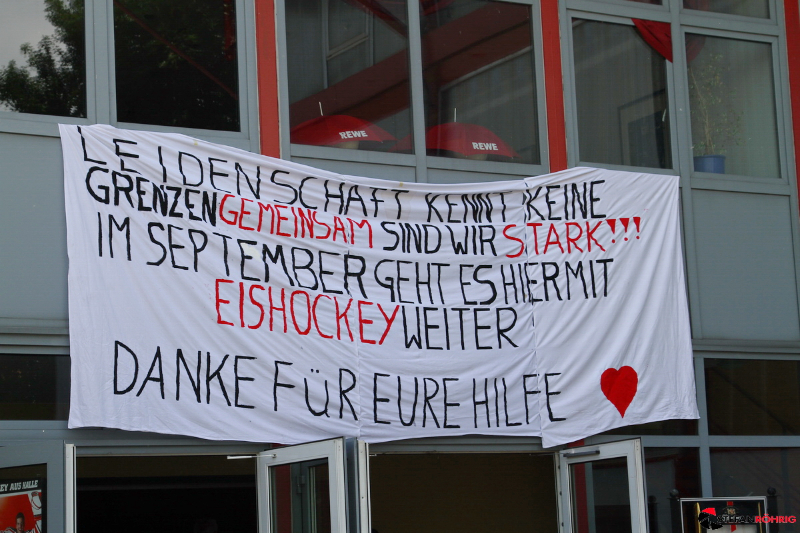 REWE
REWE
LEIDENSCHAFT KENNT KEINE
GRENZEN GEMEINSAM SIND WIR STARK!!!
IM SEPTEMBER GEHT ES HIER MIT
EISHOCKEY WEITER
DANKE FÜR EURE HILFE
EY AUS HALLE
STEFAN RÖHRIG